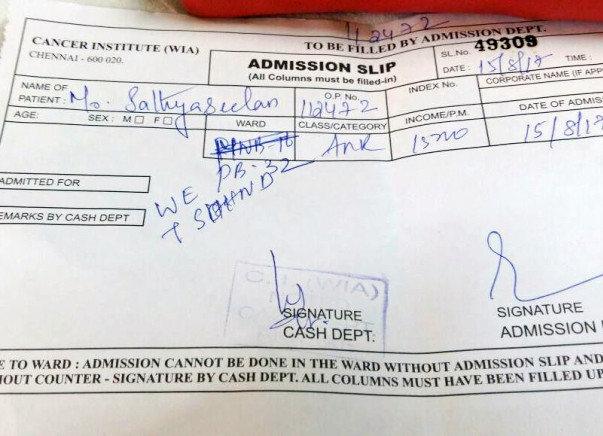 112472
CANCER INSTITUTE (WIA)
CHENNAI - 600 020.
TO BE FILLED BY ADMISSION DEPT.
ADMISSION SLIP
(All Columns must be filled-in)
SL.No. 49309
DATE : 15/8/17 TIME :
NAME OF
PATIENT : Mo. Sathyaseelan
O.P. No.
112472
INDEX No.
CORPORATE NAME (IF APP
AGE: SEX : M F
WARD
CLASS/CATEGORY
INCOME/P.M.
DATE OF ADMIS
15/8/17
ADMITTED FOR
EMARKS BY CASH DEPT
C. I. (WIA)
SIGNATURE
CASH DEPT.
SIGNATURE
ADMISSION
E TO WARD : ADMISSION CANNOT BE DONE IN THE WARD WITHOUT ADMISSION SLIP AND
HOUT COUNTER - SIGNATURE BY CASH DEPT. ALL COLUMNS MUST HAVE BEEN FILLED UP